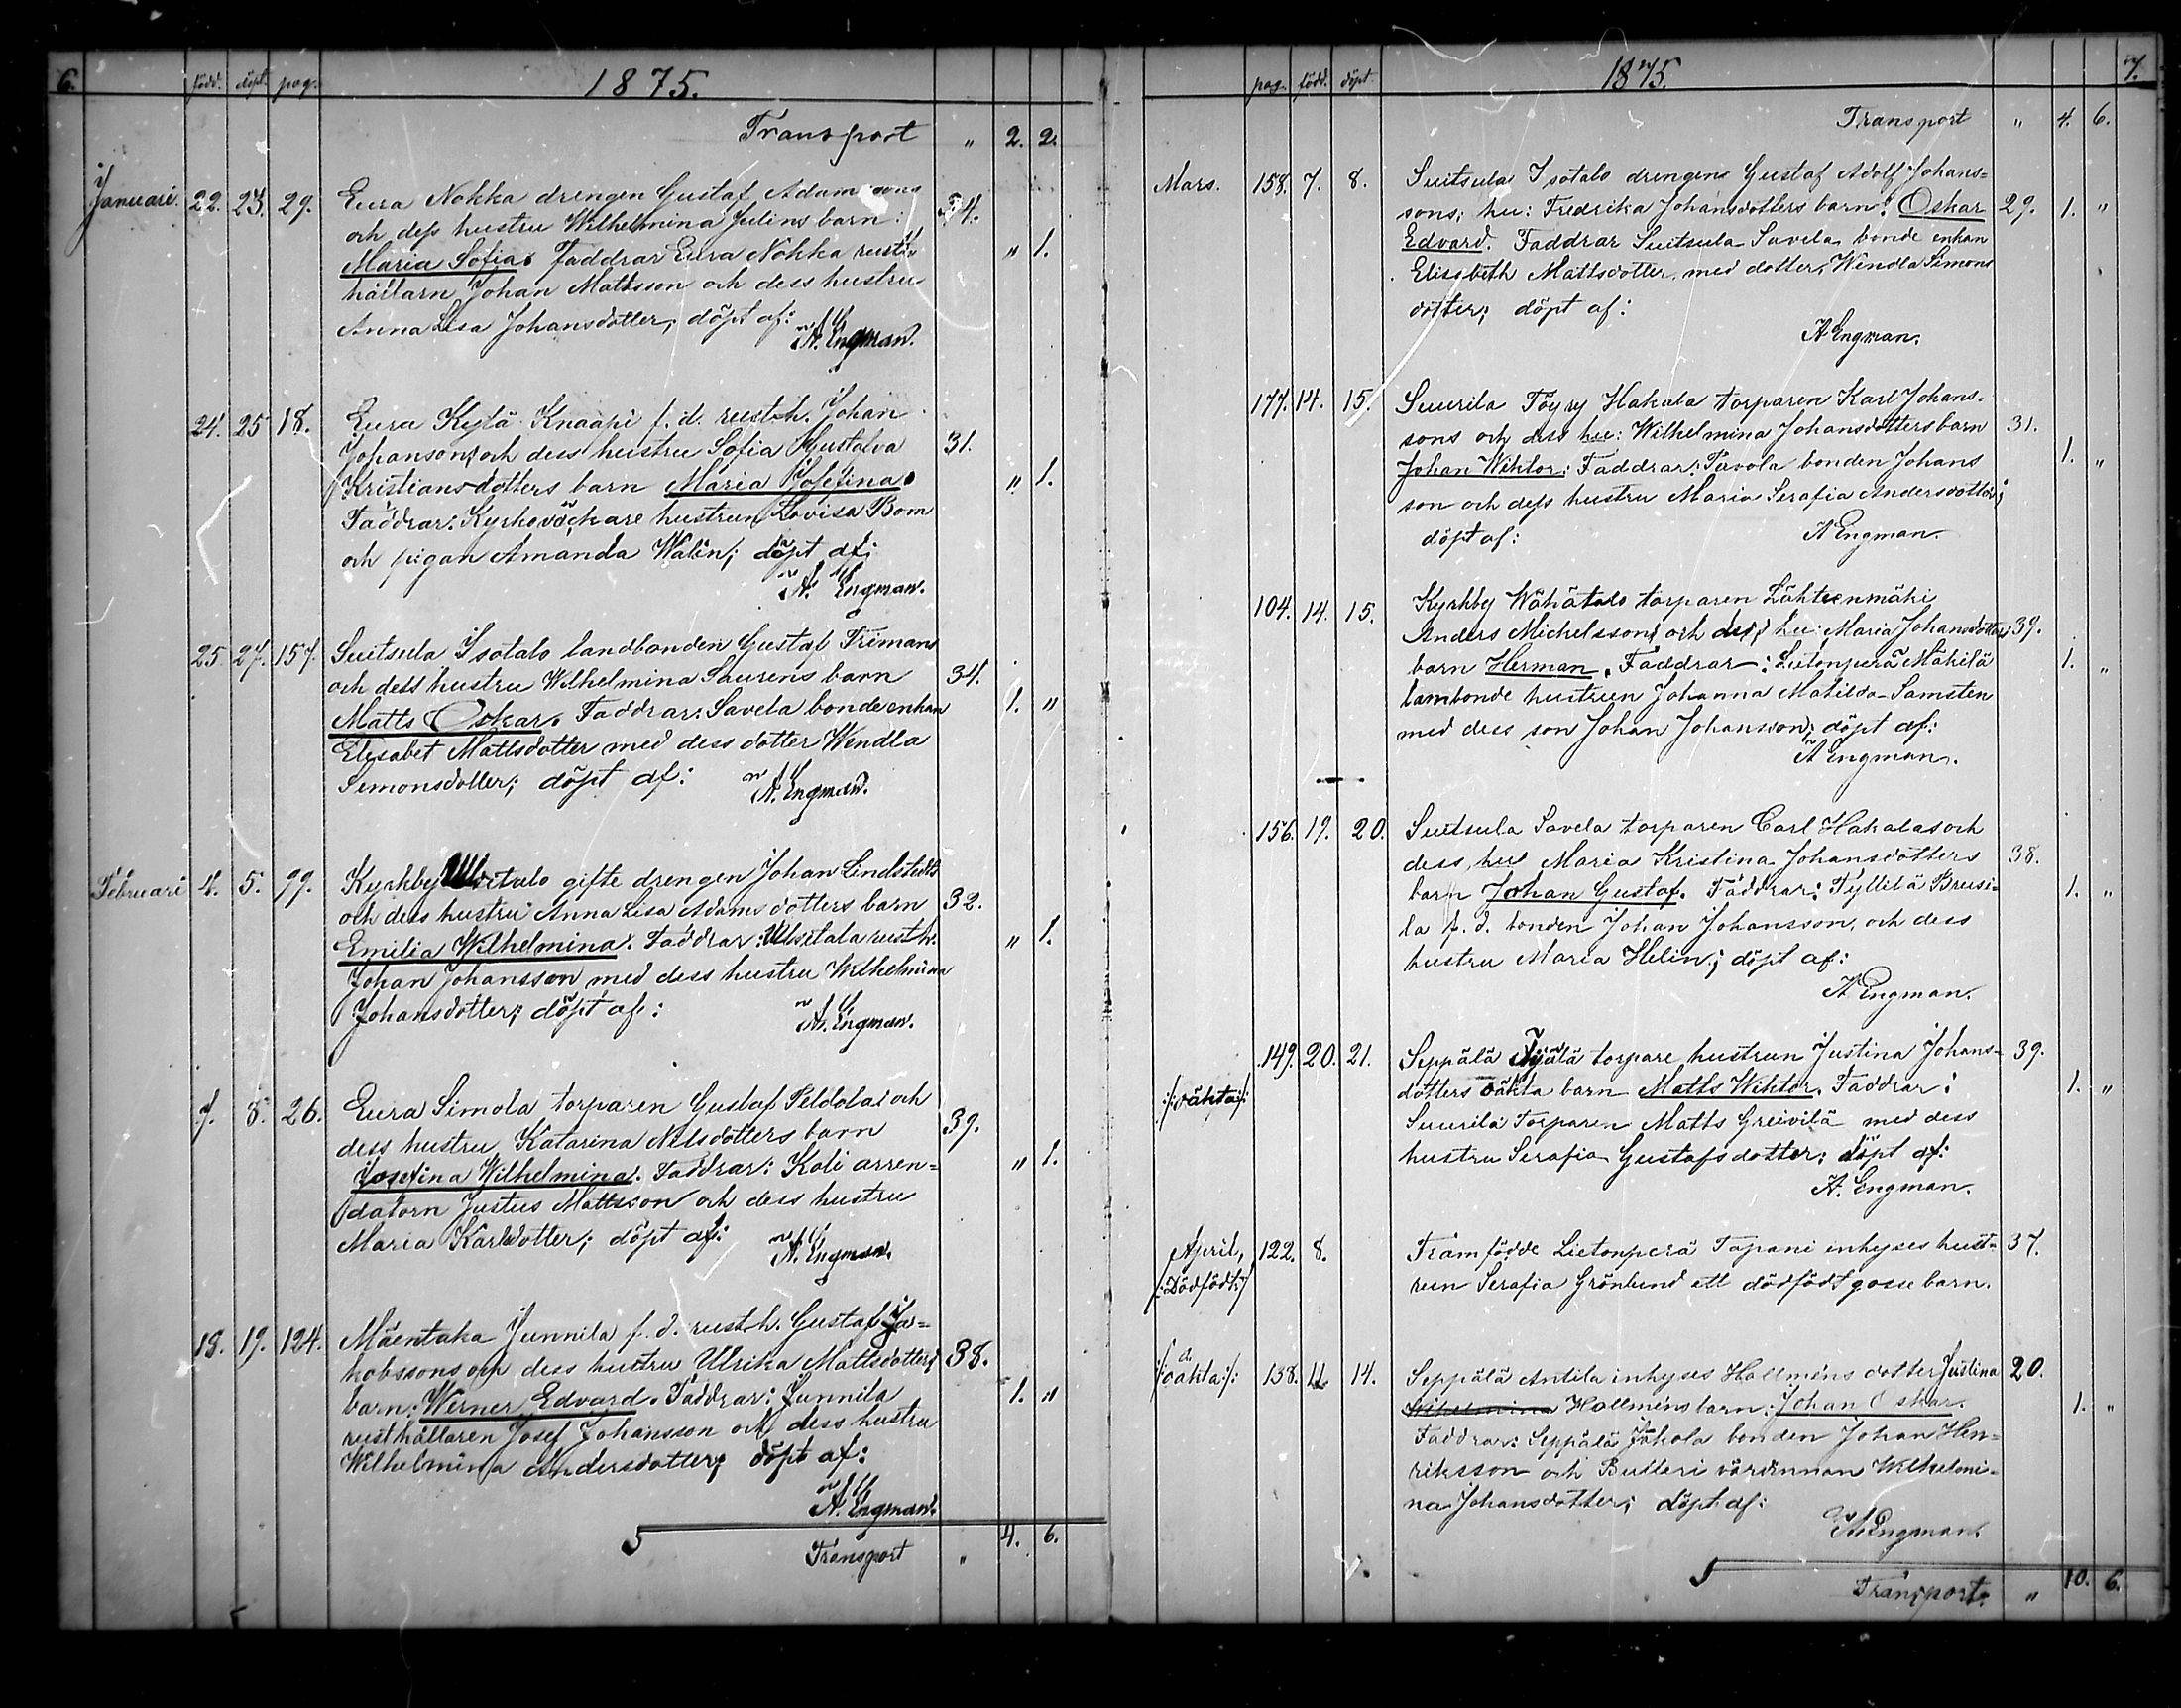 6.
född. döpt. pag. 1875.
Transport " 2. 2.
Januari. 22. 23. 29. Eura Nohka drengen Gustaf Adamssons 34.
och dess hustru Wilhelmina Julins barn:
Maria Sofia. Faddrar Eura Nohka rust- " 1.
hållarn Johan Mattsson och dess hustru
Anna Lisa Johansdotter; döpt af:
A. Engman.
24. 25 18. Eura Kylä Knaapi f. d. rusth. Johan
Johansons och dess hustru Sofia Gustafva 31.
Kristiansdotters barn Maria Josefina. " 1.
Faddrar: Kyrkoväckare hustrun Lovisa Bom
och pigan Amanda Walin; döpt af:
A. Engman.
25 27. 157. Suitsula Isotalo landbonden Gustaf Frimans
och dess hustru Wilhelmina Saurens barn 34.
Matts Oskar. Faddrar: Savela bonde enkan 1. "
Elisabet Mattsdotter med dess dotter Wendla
Simonsdotter; döpt af: A. Engman.
Februari 4. 5. 99. Kyrkby gifte drengen Johan Lindstedts
och dess hustru Anna Lisa Adamsdotters barn 32.
Emilia Wilhelmina. Faddrar: rusth. " 1.
Johan Johansson med dess hustru Wilhelmina
Johansdotter; döpt af: A. Engman.
7. 8. 26. Eura Simola torparen Gustaf Peldolas och
dess hustru Katarina Nilsdotters barn 39.
Josefina Wilhelmina. Faddrar: Koli arren- " 1.
datorn Justus Mattsson och dess hustru
Maria Karlsdotter; döpt af: A. Engman.
18. 19. 124. Mäentaka Junnila f. d. rusth. Gustaf Ja-
kobssons och dess hustru Ulrika Mattsdotters 38.
barn: Werner Edvard. Faddrar: Junnila 1. "
rusthållaren Josef Johansson och dess hustru
Wilhelmina Andersdotter; döpt af:
A. Engman.
Transport " 4. 6.
7.
pag. född. döpt 1875.
Transport " 4. 6.
Mars. 158. 7. 8. Suitsula Isotalo drengens Gustaf Adolf Johans-
sons; hu: Fredrika Johansdotters barn: Oskar 29. 1. "
Edvard. Faddrar Suitsula Savela bonde enkan
Elisabeth Mattsdotter med dotter, Wendla Simons
dotter; döpt af:
A Engman.
177. 14. 15. Suurila Töyry Hakala torparen Karl Johans-
sons och dess hu: Wilhelmina Johansdotters barn 31.
Johan Wiktor: Faddrar: Pavola bonden Johans 1. "
son och dess hustru Maria Serafia Andersdotter;
döpt af: A Engman.
104. 14. 15. Kyrkby Wähätalo torparen Lähteenmäki
Anders Michelssons och dess hu: Maria Johansdotters 39.
barn Herman. Faddrar: Lietonperä Mäkilä 1. "
lambonde hustrun Johanna Matilda Samsten
med dess son Johan Johansson; döpt af:
A Engman.
156. 19. 20. Suitsula Savela torparen Carl Hakalas och
dess hus Maria Kristina Johansdotters 38.
barn Johan Gustaf. Faddrar: Pyllilä Breusi- 1. "
la f. d. bonden Johan Johansson, och dess
hustru Maria Helin; döpt af:
A Engman.
149. 20. 21. Seppälä torpare hustrun Justina Johans- 39.
/:oäkta:/ dotters oäkta barn Matts Wiktor. Faddrar: 1. "
Suurila Torparen Matts Greivilä med dess
hustru Serafia Gustafsdotter; döpt af:
A. Engman.
April, 122. 8. Framfödde Lietonperä Tapani inhyses hust- 37.
/:Dödfödt:/ run Serafia Grönlund ett dödfödt gosse barn.
/:oäkta:/ 138. 11. 14. Seppälä Antila inhyses Hallméns dotter Justina 20.
Wilhelmina Hallméns barn: Johan Oskar. 1. "
Faddrar: Seppälä Jakola bonden Johan Hen-
riksson och Butleri värdinnan Wilhelmi-
na Johansdotter; döpt af:
A Engman.
Transport. " 10. 6.